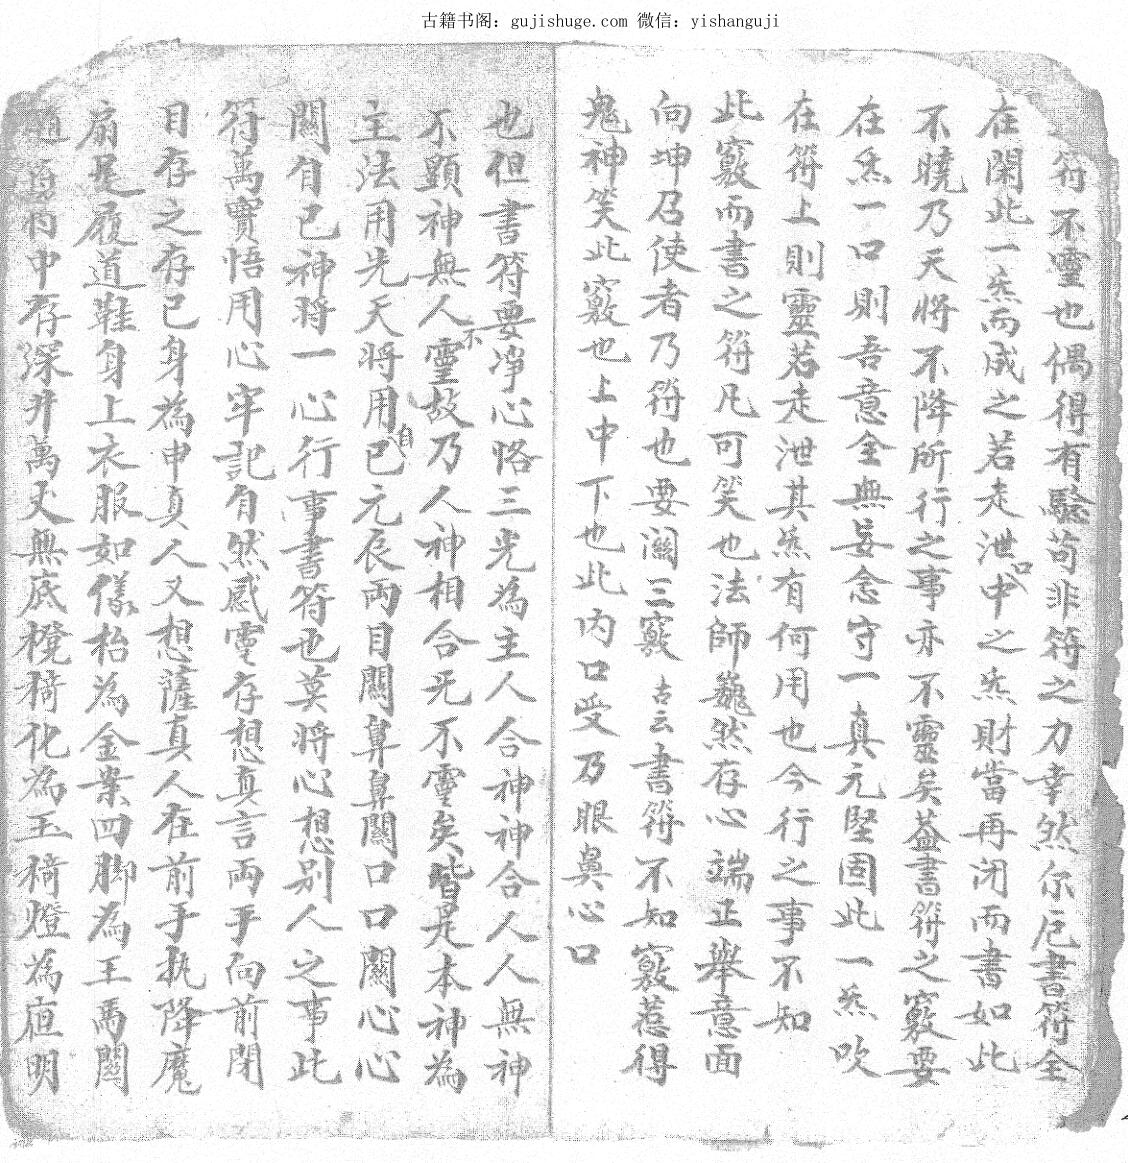 古籍书阁：gujishuge.com 微信：yishanguji
符不靈也偶得有驗苟非符之力幸然尔凡書符全
在閑此一炁而成之若走泄口中之炁財當再闭而書如此
不曉乃天將不降所行之事亦不靈矣蓋書符之竅要
在炁一口則吾意全無妄念守一真元堅固此一炁吹
在符上則靈若走泄其炁有何用也今行之事不知
此竅而書之符凡可笑也法師巍然存心端正舉意面
向坤召使者乃符也要阔三竅古云書符不知竅惹得
鬼神笑此竅也上中下也此内口受乃眼鼻心口
也但書符要净心恪三光為主人合神神合人人無神
不顕神無人不靈故乃人神相合无不靈矣皆是本神為
主法用先天將用自已元辰兩目關鼻鼻關口口關心心
關自已神將一心行事書符也莫將心想别人之事此
符萬寶悟用心牢記自然感靈存想真言兩手向前閉
目存之存已身為申真人又想薩真人在前手执降魔
扇足履道鞋身上衣服如儀枱為金業四脚為王馬關
中存深井萬丈無底櫈椅化為玉椅燈為庭明